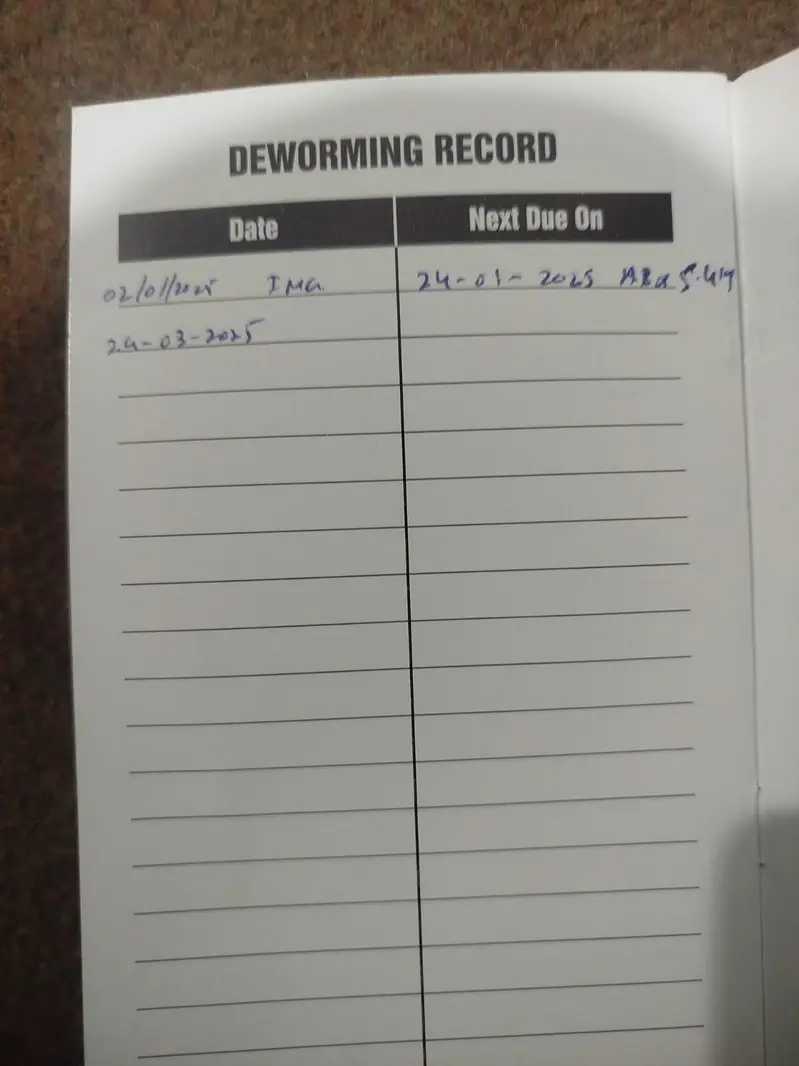 DEWORMING RECORD
Date Next Due On
02/01/2025 24-01-2025
24-03-2025